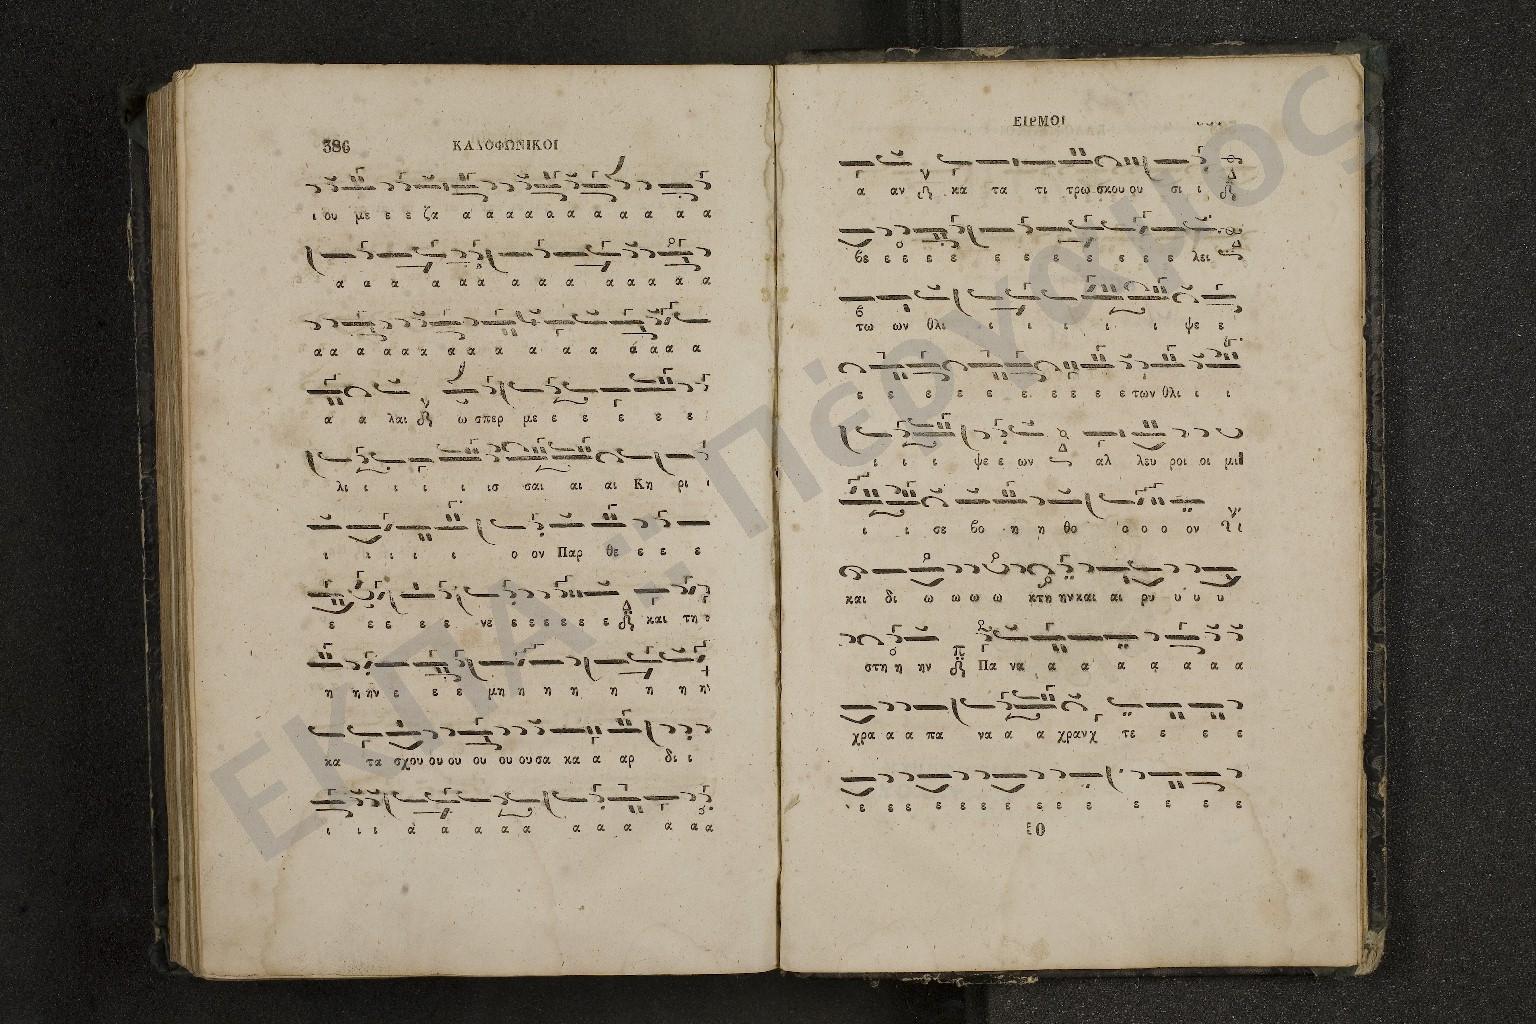 386
ΚΑΛΟΦΩΝΙΚΟΙ
ι ου με ε ε ζα α α α α α α α α α α α
α α α α α α α α α α α α α
α α α α α α α α α α α α α ά α α α
α α λαι ω σπερ με ε ε ε ε ε
λι ι ι ι ι ισ σαι αι αι Κη ρι ι
ι ι ι ι ι ο ον Παρ θε ε ε ε
ε ε ε ε ε νε ε ε ε ε ε ε και τη
η η ην ε ε ε μη η η η η η η
κα τα σχου ου ου ου ου ου σα κα α αρ δι ι
ι ι ι α α α α α α α α α α α
ΕΙΡΜΟΙ
α αν κα τα τι τρω σκου ου σι ι
βε ε ε ε ε ε ε ε ε ε ε ε λει
τω ων θλι ι ι ι ι ι ψε ε
ε ε ε ε ε ε ε ε ε ε των θλι ι ι
ι ι ι ψε ε ων αλ λευ ροι οι μι
ι ι σε βο η η θο ο ο ο ον
και δι ω ω ω ω κτη ην και αι ρυ υ υ υ
στη η ην Πα να α α α α α α α
χρα α α πα να α α χραν χ τε ε ε ε
ε ε ε ε ε ε ε ε ε ε ε ε ε ε
ΕΚΠΑ :: Πέργαμος